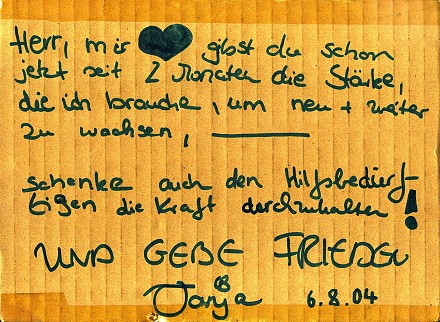 Herr, mir ♥ gibst du schon
jetzt seit 2 Monaten die Stärke,
die ich brauche, um neu + weiter
zu wachsen,
schenke auch den Hilfsbedürf-
tigen die Kraft durchzuhalten!
UND GEBE FRIEDEN
Tanja
6.8.04